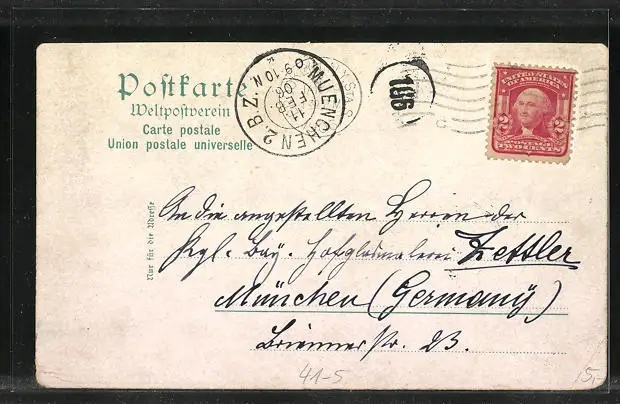 Postkarte
Weltpostverein
Carte postale
Union postale universelle
MUENCHEN 2 B.Z.
11 FEB 06
9-10 N
106
UNITED STATES OF AMERICA
2 2
POSTAGE
TWO CENTS
Nur für die Adresse
An die angestellten Herren der
Kgl. Bay. Hofglasmalerei Zettler
München (Germany)
Briennerstr. 23.
41-5
15,-